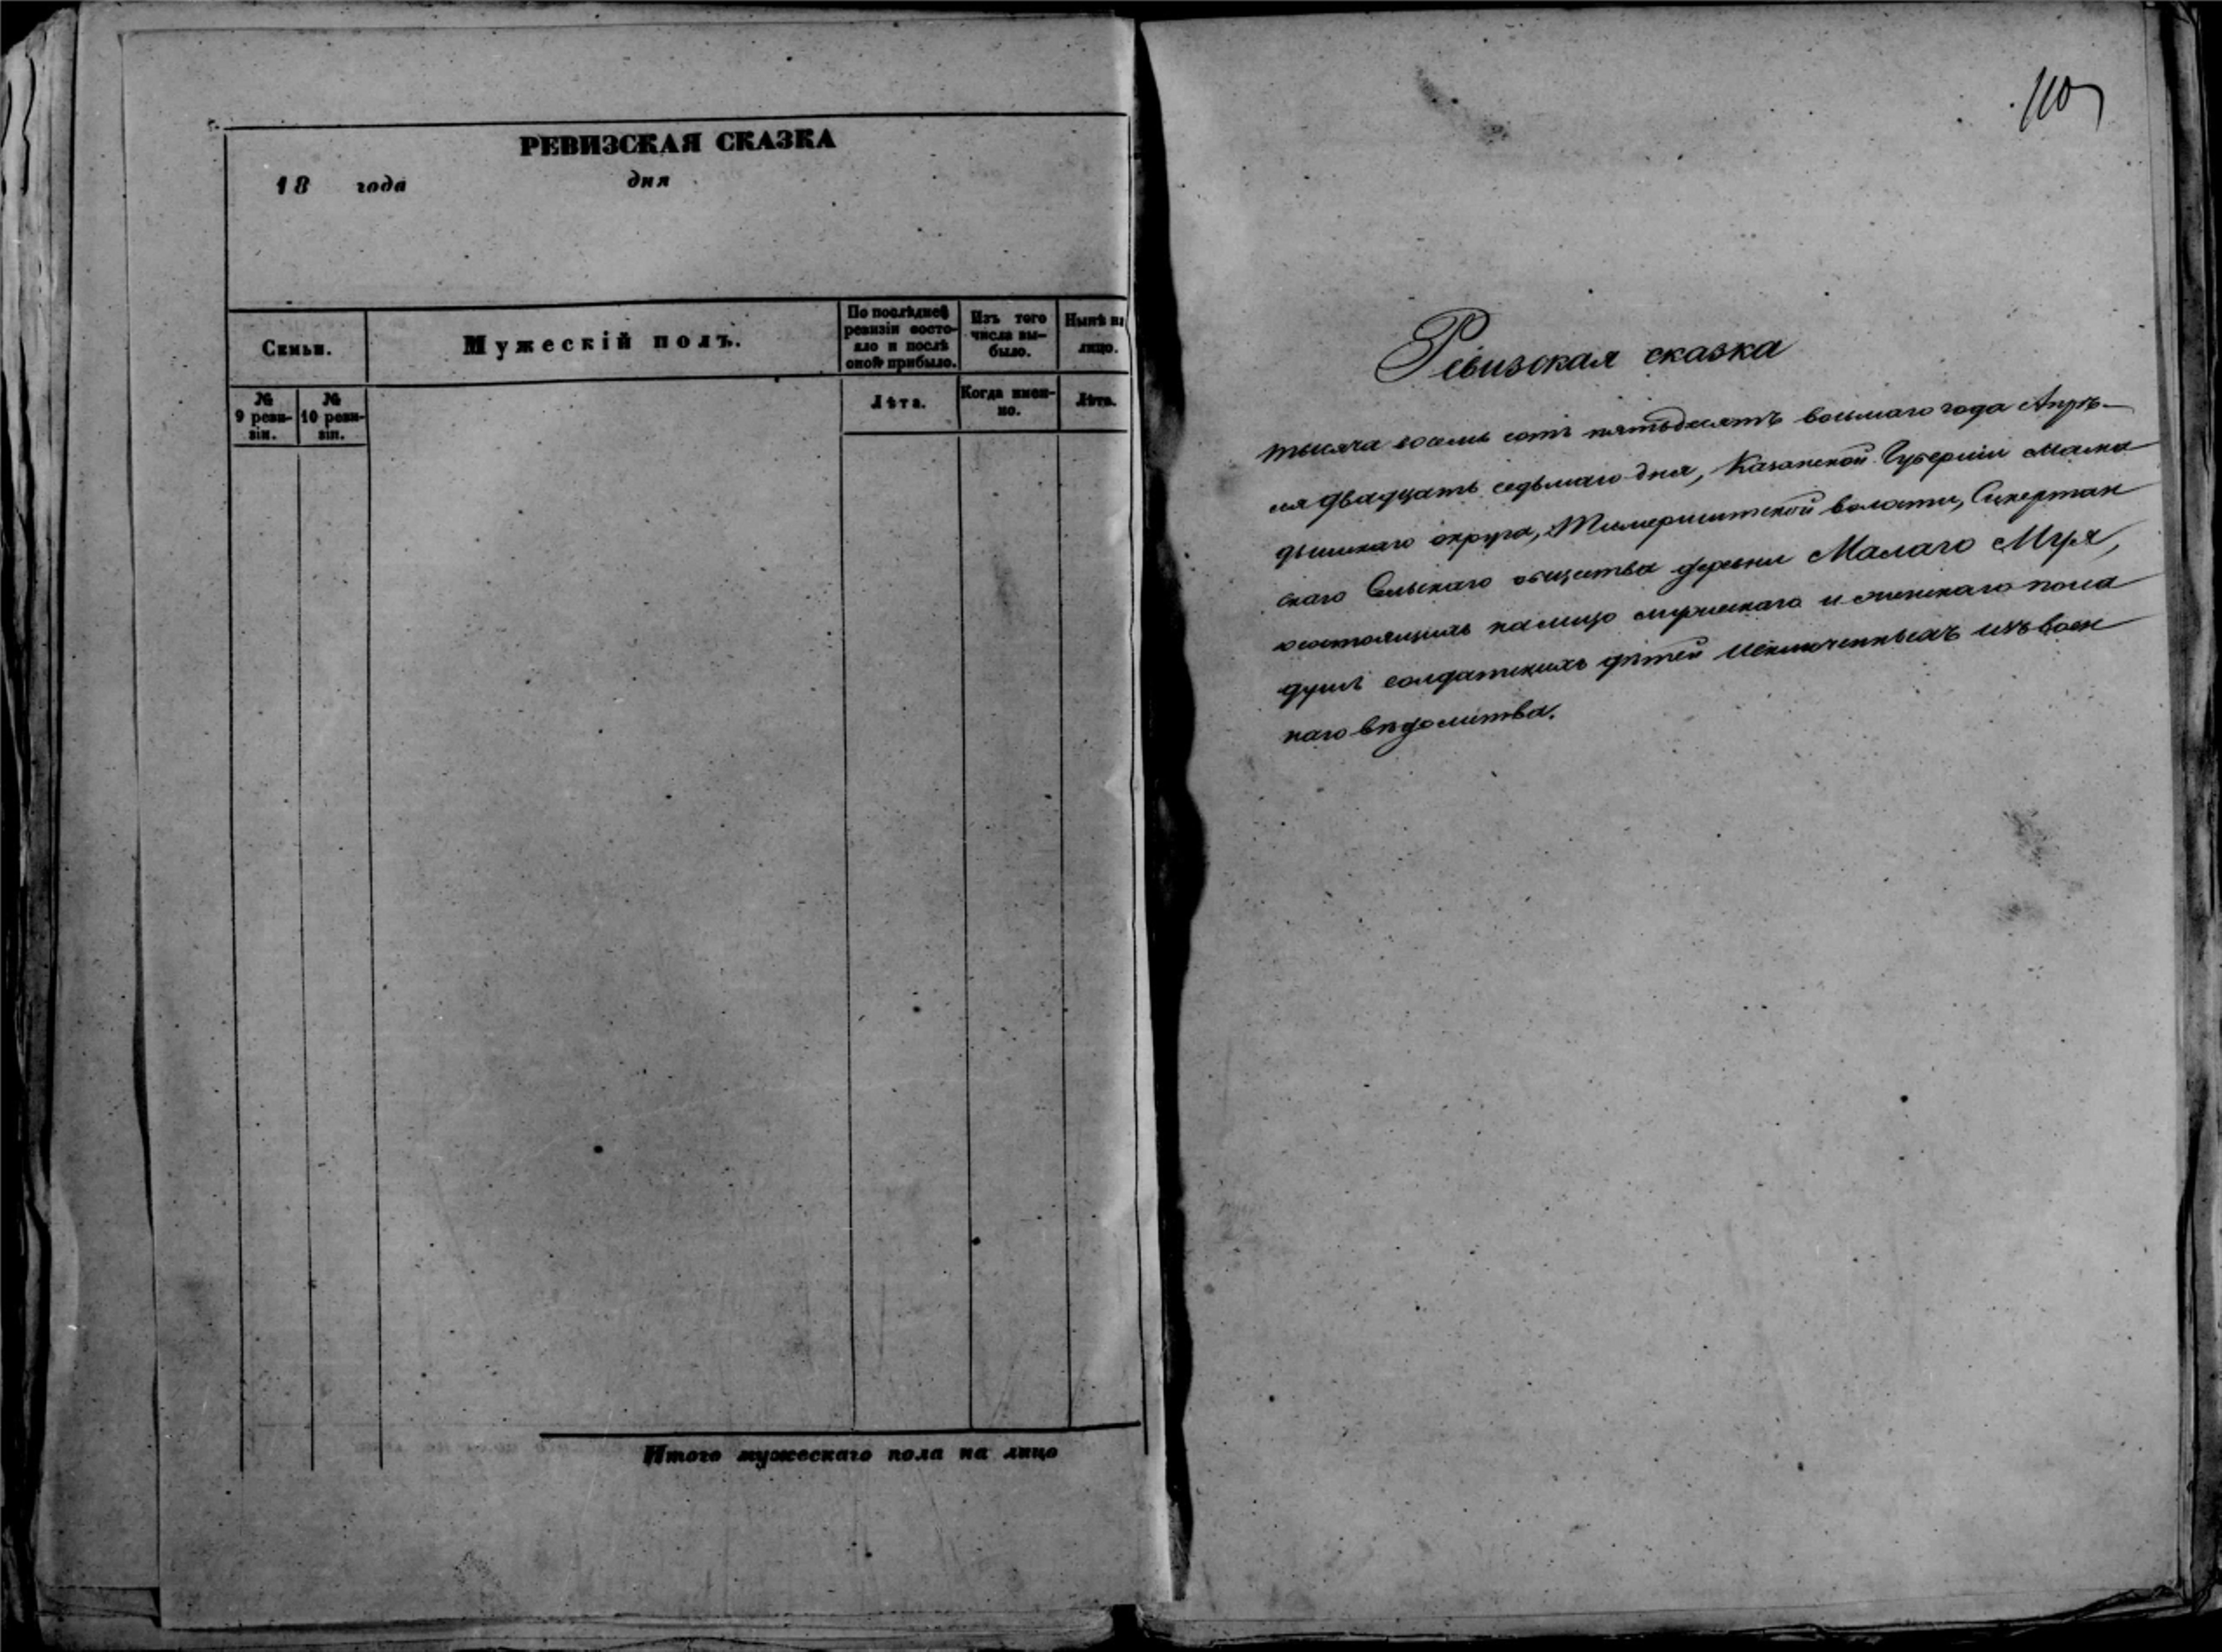 РЕВИЗСКАЯ СКАЗКА
18 года дня
Семьи.
Мужескій полъ.
По послѣдней ревизіи состояло и послѣ оной прибыло.
Изъ того числа выбыло.
Нынѣ на лицо.
№ 9 ревизіи.
№ 10 ревизіи.
Лѣта.
Когда именно.
Лѣта.
Итого мужескаго пола на лицо
110
Ревизская сказка
тысяча восемь сотъ пятьдесятъ восьмаго года Апрѣ-
ля двадцать седьмаго дня, Казанской Губерніи Мама
дышскаго округа, волости,
скаго Сельскаго общества деревни Малаго Муя,
состоящихъ налицо мужескаго и женскаго пола
душъ солдатскихъ дѣтей исключенныхъ изъ воен
наго вѣдомства.